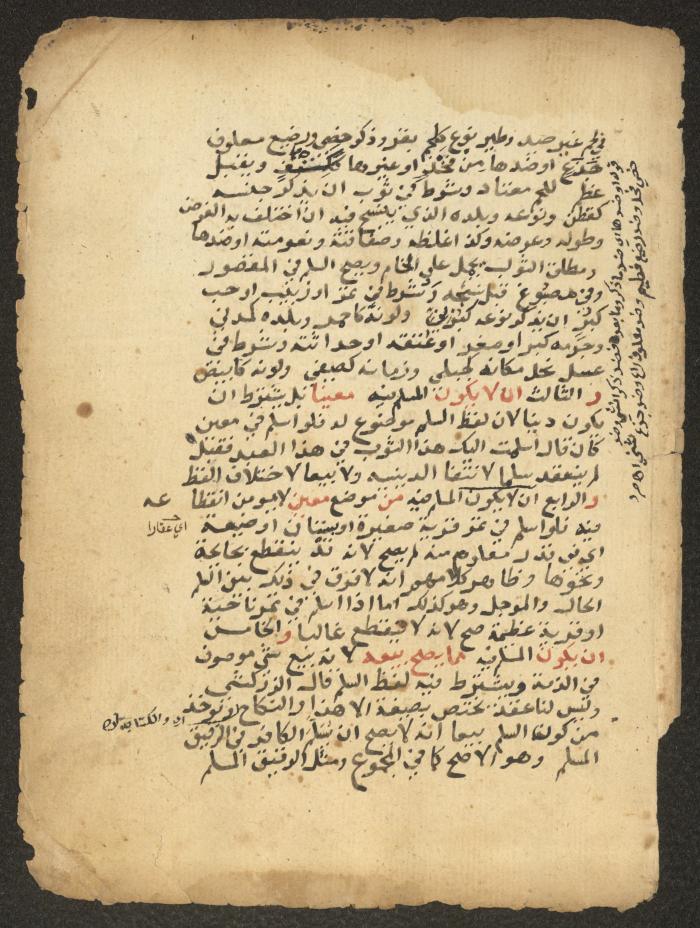 في لحم غير صيد وطير نوع كلحم بقر وذكر خصي رضيع معلوف
جذع او ضدها من فخذ او غيرها ككتف ويقبل
عظم للحم معتاد وشرط في ثوب ان يذكر جنسه
كقطن ونوعه وبلده الذي ينسج فيه ان اختلف به الغرض
وطوله وعرضه وكذا غلظه وصفاقته ونعومته او ضدها
ومطلق الثوب يحمل على الخام ويصح السلم في المقصور
وفي مصبوغ قبل نسجه وشرط في تمر او زبيب او حب
كبر ان يذكر نوعه ولونه كاحمر وبلده كمدني
وجرمه كبرا وصغرا وعتقه او حداثته وشرط في
عسل نحل مكانه كجبلي وزمانه كصيفي ولونه كابيض
و الثالث ان لا يكون المسلم فيه معينا بل يشترط ان
يكون دينا لان لفظ السلم موضوع له فلو اسلم في معين
كان قال اسلمت اليك هذا الثوب في هذا العبد فقبل
لم ينعقد سلما لانتفا الدينيه ولا بيعا لاختلاف اللفظ
و الرابع ان لا يكون المسلم فيه من موضع معين لا يومن انقطاعه
فيه فلو اسلم في تمر قرية صغيرة او بستان او ضيعة
اي في قدر معلوم منه لم يصح لانه قد ينقطع بجائحة
ونحوها وظاهر كلامهم انه لا فرق في ذلك بين السلم
الحال والموجل وهو كذلك اما اذا اسلم في تمر ناحية
او قرية عظيمة صح لانه لا ينقطع غالبا و الخامس
ان يكون المسلم فيه مما يصح بيعه لانه بيع شي موصوف
في الذمة ويشترط فيه لفظ السلم قال الزركشي
وليس لنا عقد يختص بصيغة الا هذا والنكاح ويوخذ
من كون السلم بيعا انه لا يصح ان يسلم الكافر في الرقيق
المسلم وهو الاصح كما في المجموع ومثل الرقيق المسلم
اي عقارا
اي والكتابة
قوله او ضدها